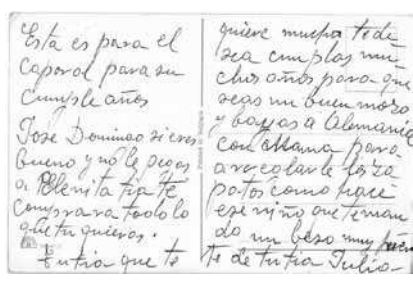 Esta es para el
caporal para su
cumpleaños
Jose Domingo si eres
bueno y no le pegas
a Elenita tia te
comprara todo lo
que tu quieras.
tu tia que te
quiere mucho te de
sea cumplas mu
chos años para que
seas un buen mozo
y bayas a Alemania
con Mama para
arreglarle los za
patos como hace
ese niño que te man
do un beso muy fuer
te de tu tia Julia
Printed in